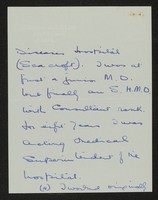 Diseases Hospital
(Seacroft). I was at
first a Junior M.O.
but finally an S.H.M.O.
with Consultant rank.
For eight years I was
Acting Medical
Superintendent of the
hospital.
(a) I worked originally